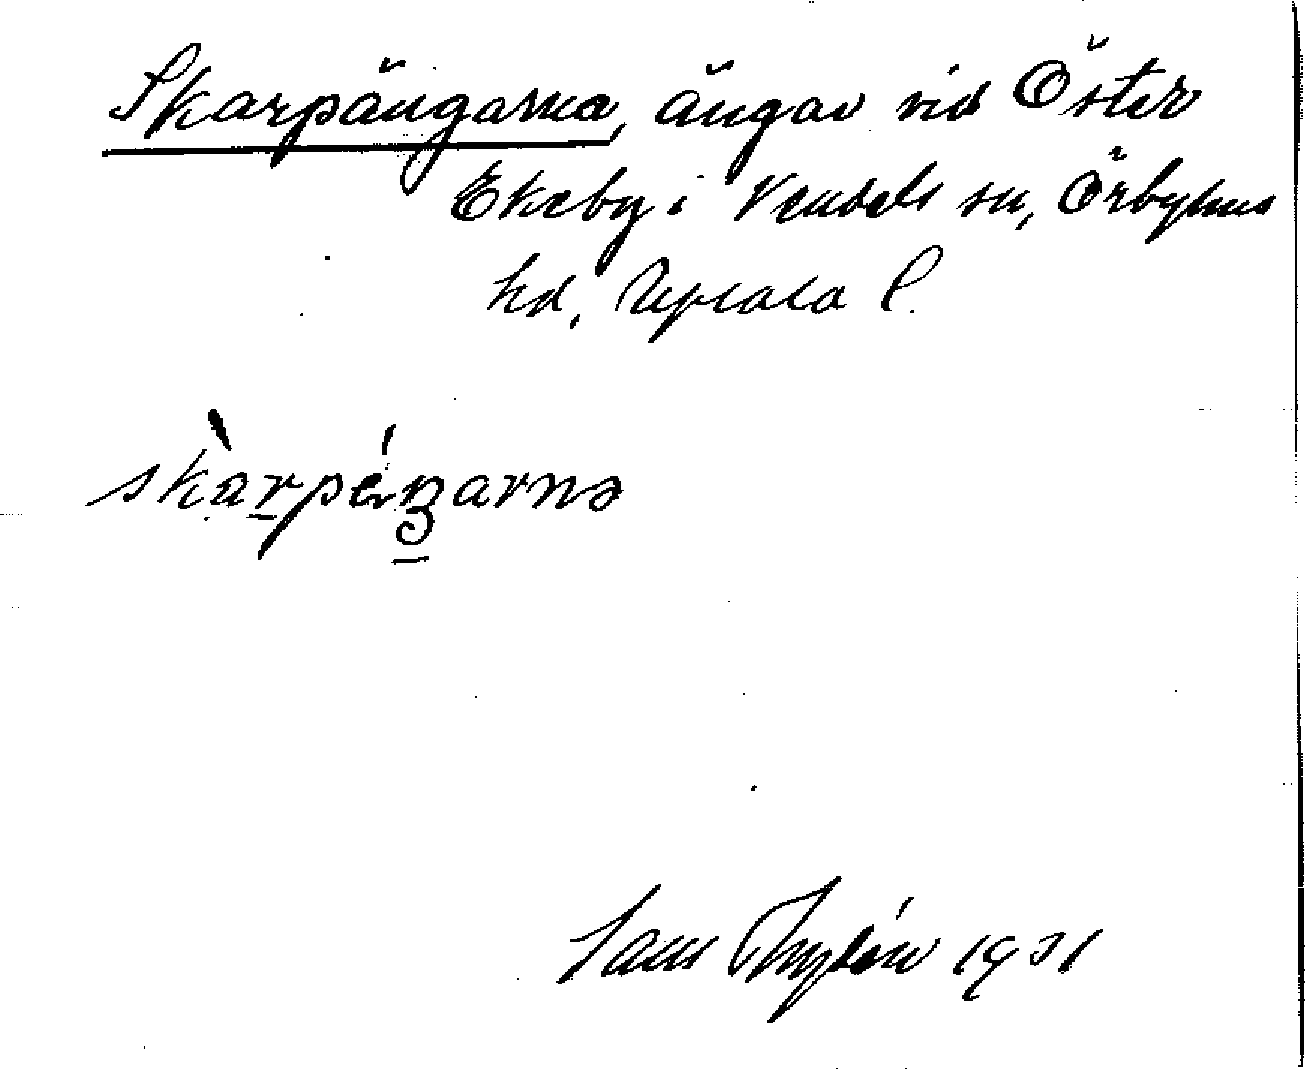 Skarpängarna, ängar vid Öster
Ekeby i Vendels sn, Örbyhus
hd, Upsala l.
skàrpéŋarnə
1931